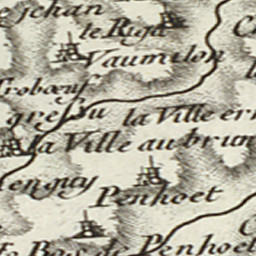 jehan
le Riga
Vaumilon
Trobœuf
gressu
la Ville ern
la Ville au brun
enguy
Penhoet
Bois de Penhoet